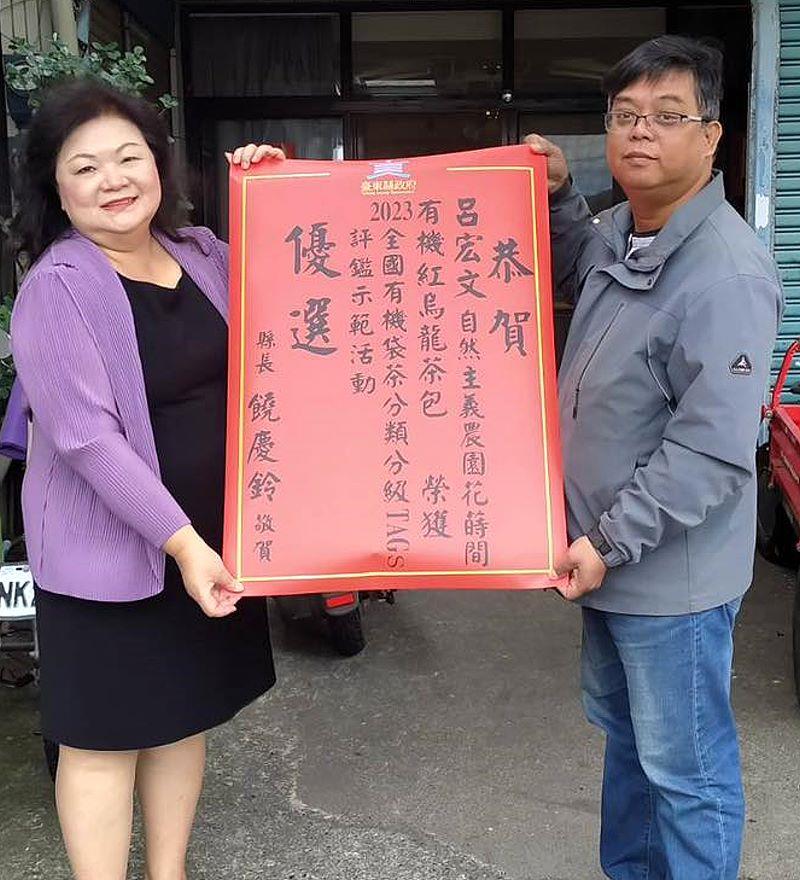 臺東縣政府
恭賀
呂宏文 自然主義農園花蒔間
有機紅烏龍茶包 榮獲
2023全國有機袋茶分類分級TAGs
評鑑示範活動
優選
縣長 饒慶鈴 敬賀
NK